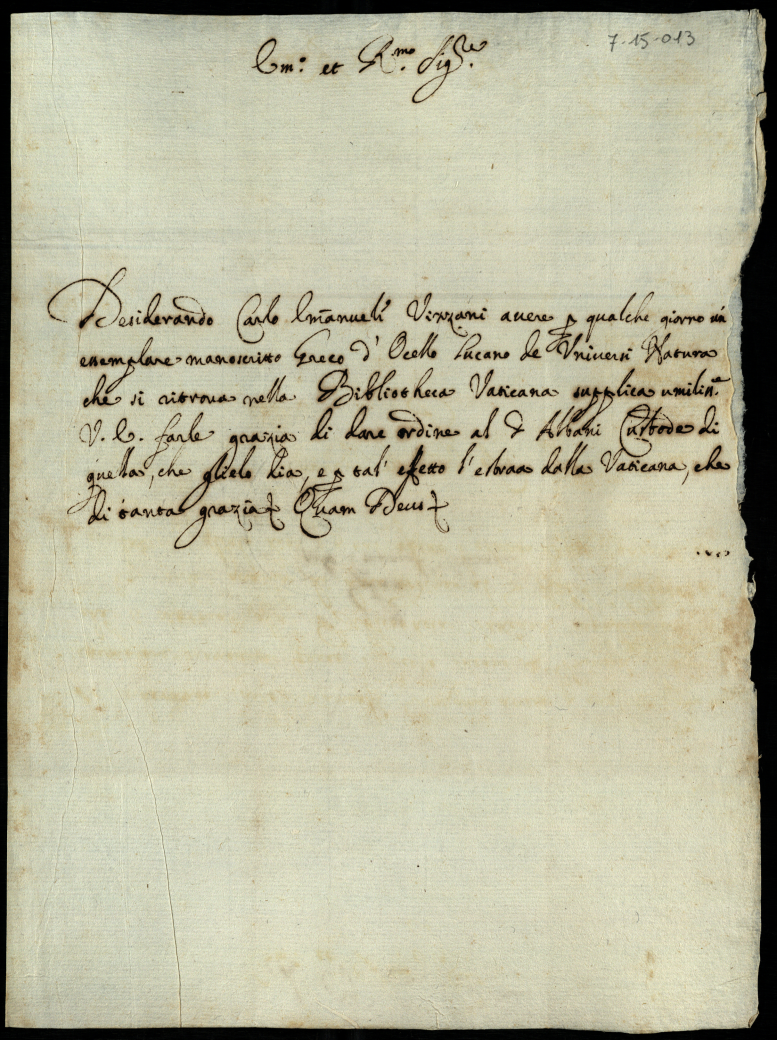 7-15-013
Em.º et R.mo Sig.re
Desiderando Carlo Emanuel' Vizzani avere p qualche giorno un
essemplare manoscritto Greco d' Ocello Lucano de Universi Natura
che si ritrova nella Bibliotheca Vaticana supplica umiliss.te
V. E. farle grazia di dare ordine al Albani Custode di
quella, che glielo dia, e p tal' effetto l' estraa dalla Vaticana, che
di tanta grazia Quam Deus